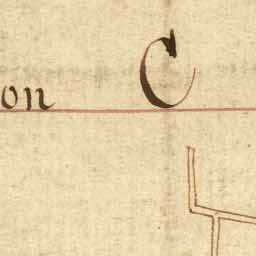 on C